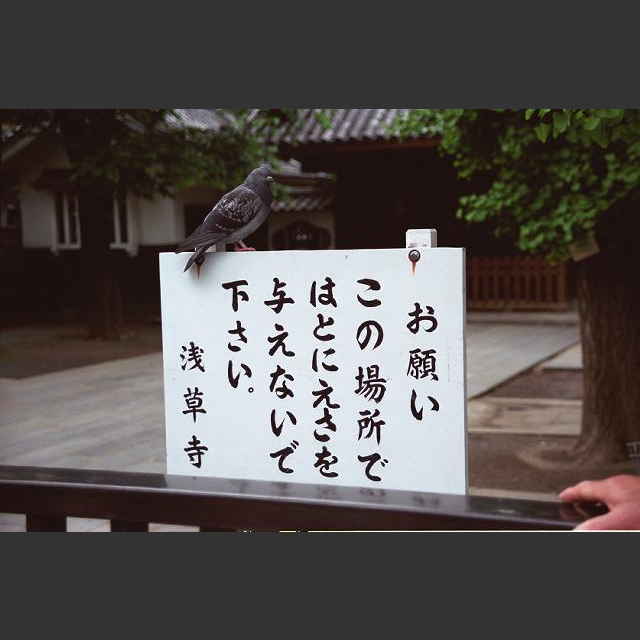 お願い
この場所で
はとにえさを
与えないで
下さい。
浅草寺